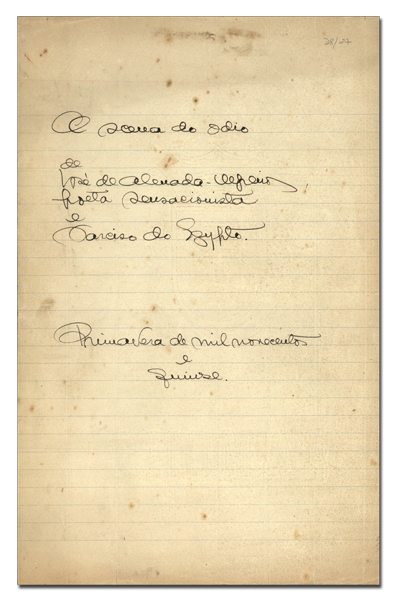 28/27
A scena do odio
de
José de Almada-Negreiros,
poeta sensacionista
e
Narciso do Egypto.
Primavera de mil novecentos
e
quinse.